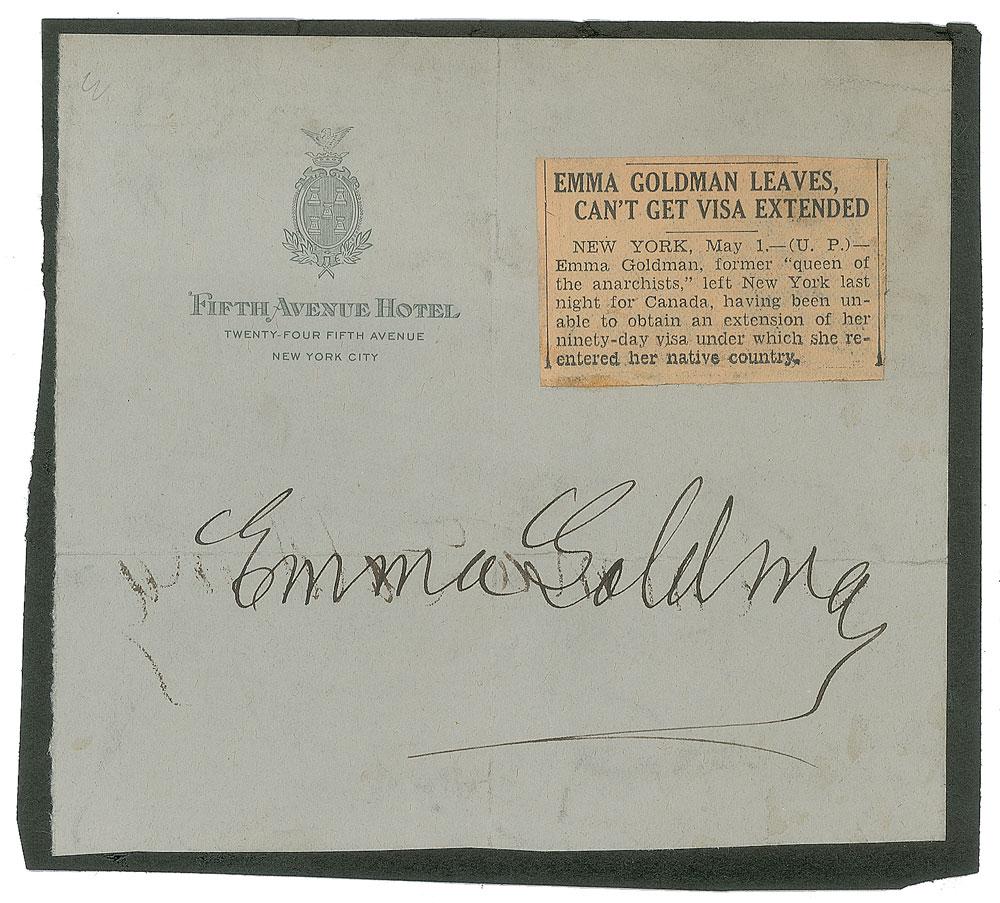 FIFTH AVENUE HOTEL
TWENTY-FOUR FIFTH AVENUE
NEW YORK CITY
EMMA GOLDMAN LEAVES,
CAN'T GET VISA EXTENDED
NEW YORK, May 1.—(U. P.)—
Emma Goldman, former "queen of
the anarchists," left New York last
night for Canada, having been un-
able to obtain an extension of her
ninety-day visa under which she re-
entered her native country.
Emma Goldman